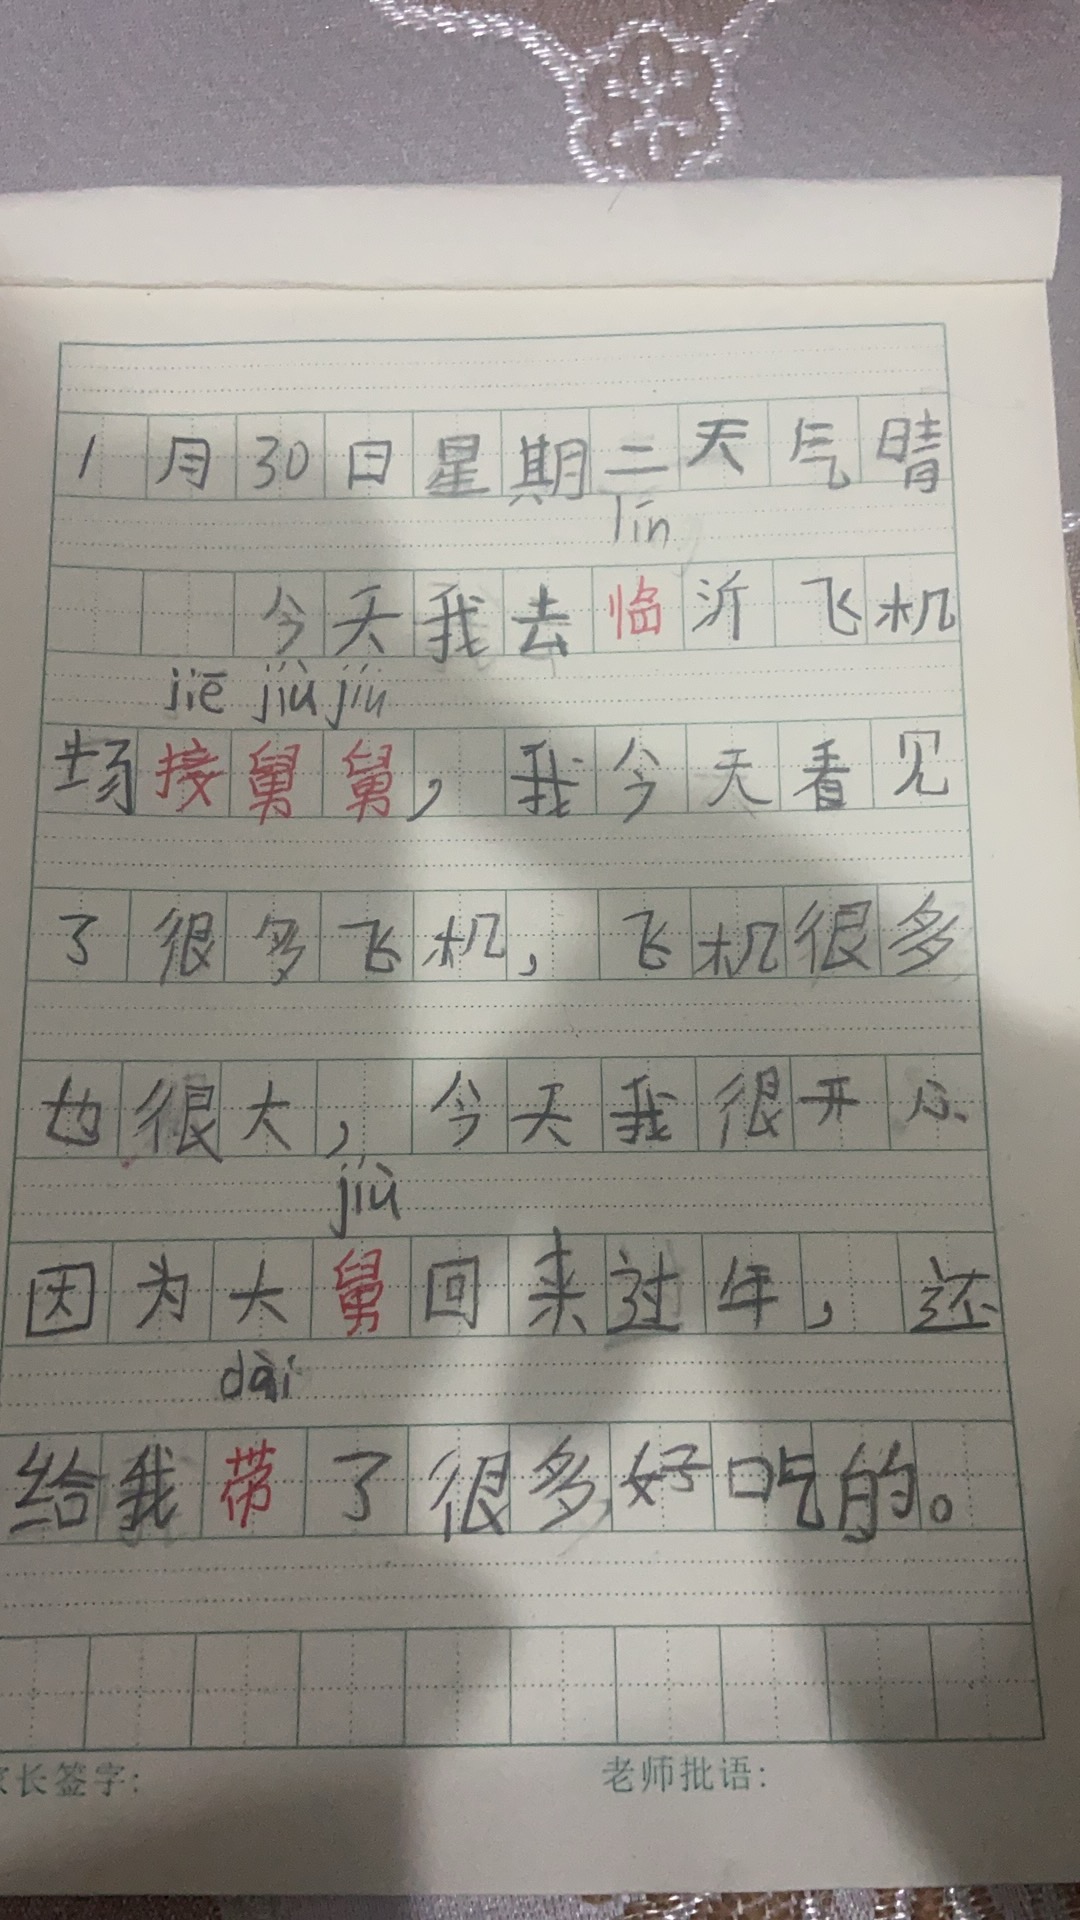 1月30日星期二天气晴
lín
今天我去临沂飞机
jiē jiù jiu
场接舅舅，我今天看见
了很多飞机，飞机很多
也很大，今天我很开心
jiù
因为大舅回来过年，还
dài
给我带了很多好吃的。
长签字： 老师批语：